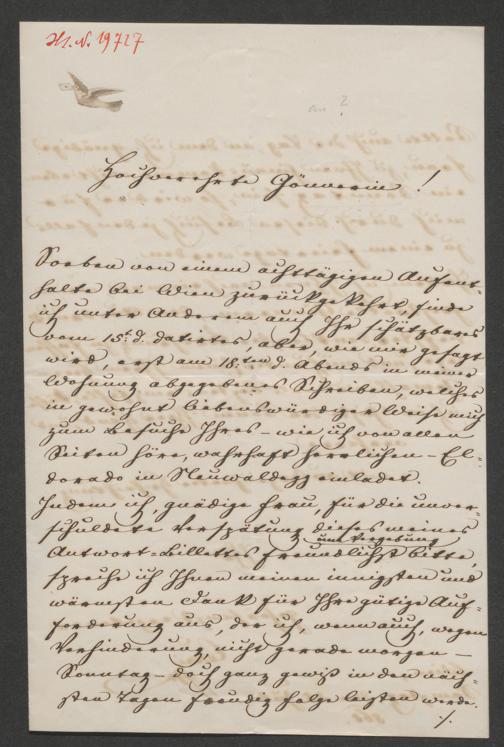 H. N. 19727
an ?
Hochverehrte Gönnerin!
Soeben von einem achttägigen Aufent-
halte bei Wien zurückgekehrt, finde
ich unter Anderem auch Ihr schätzbares
vom 15t. d. datirtes, aber, wie mir gesagt
wird, erst am 18.ten d. Abends in meiner
Wohnung abgegebenes Schreiben, welches
in gewohnt liebenswürdiger Weise mich
zum Besuche Ihres – wie ich von allen
Seiten höre, wahrhaft herrlichen – El-
dorado in Neuwaldegg einladet.
Indem ich, gnädige Frau, für die unver-
schuldete Verspätung dieses meines
um Vergebung
Antwort-Billettes freundlichst bitte,
spreche ich Ihnen meinen innigsten und
wärmsten Dank für Ihre gütige Auf-
forderung aus, der ich, wenn auch, wegen
Verhinderung, nicht gerade morgen –
Sonntag – doch ganz gewiß in den näch-
sten Tagen freudig Folge leisten werde.
./.